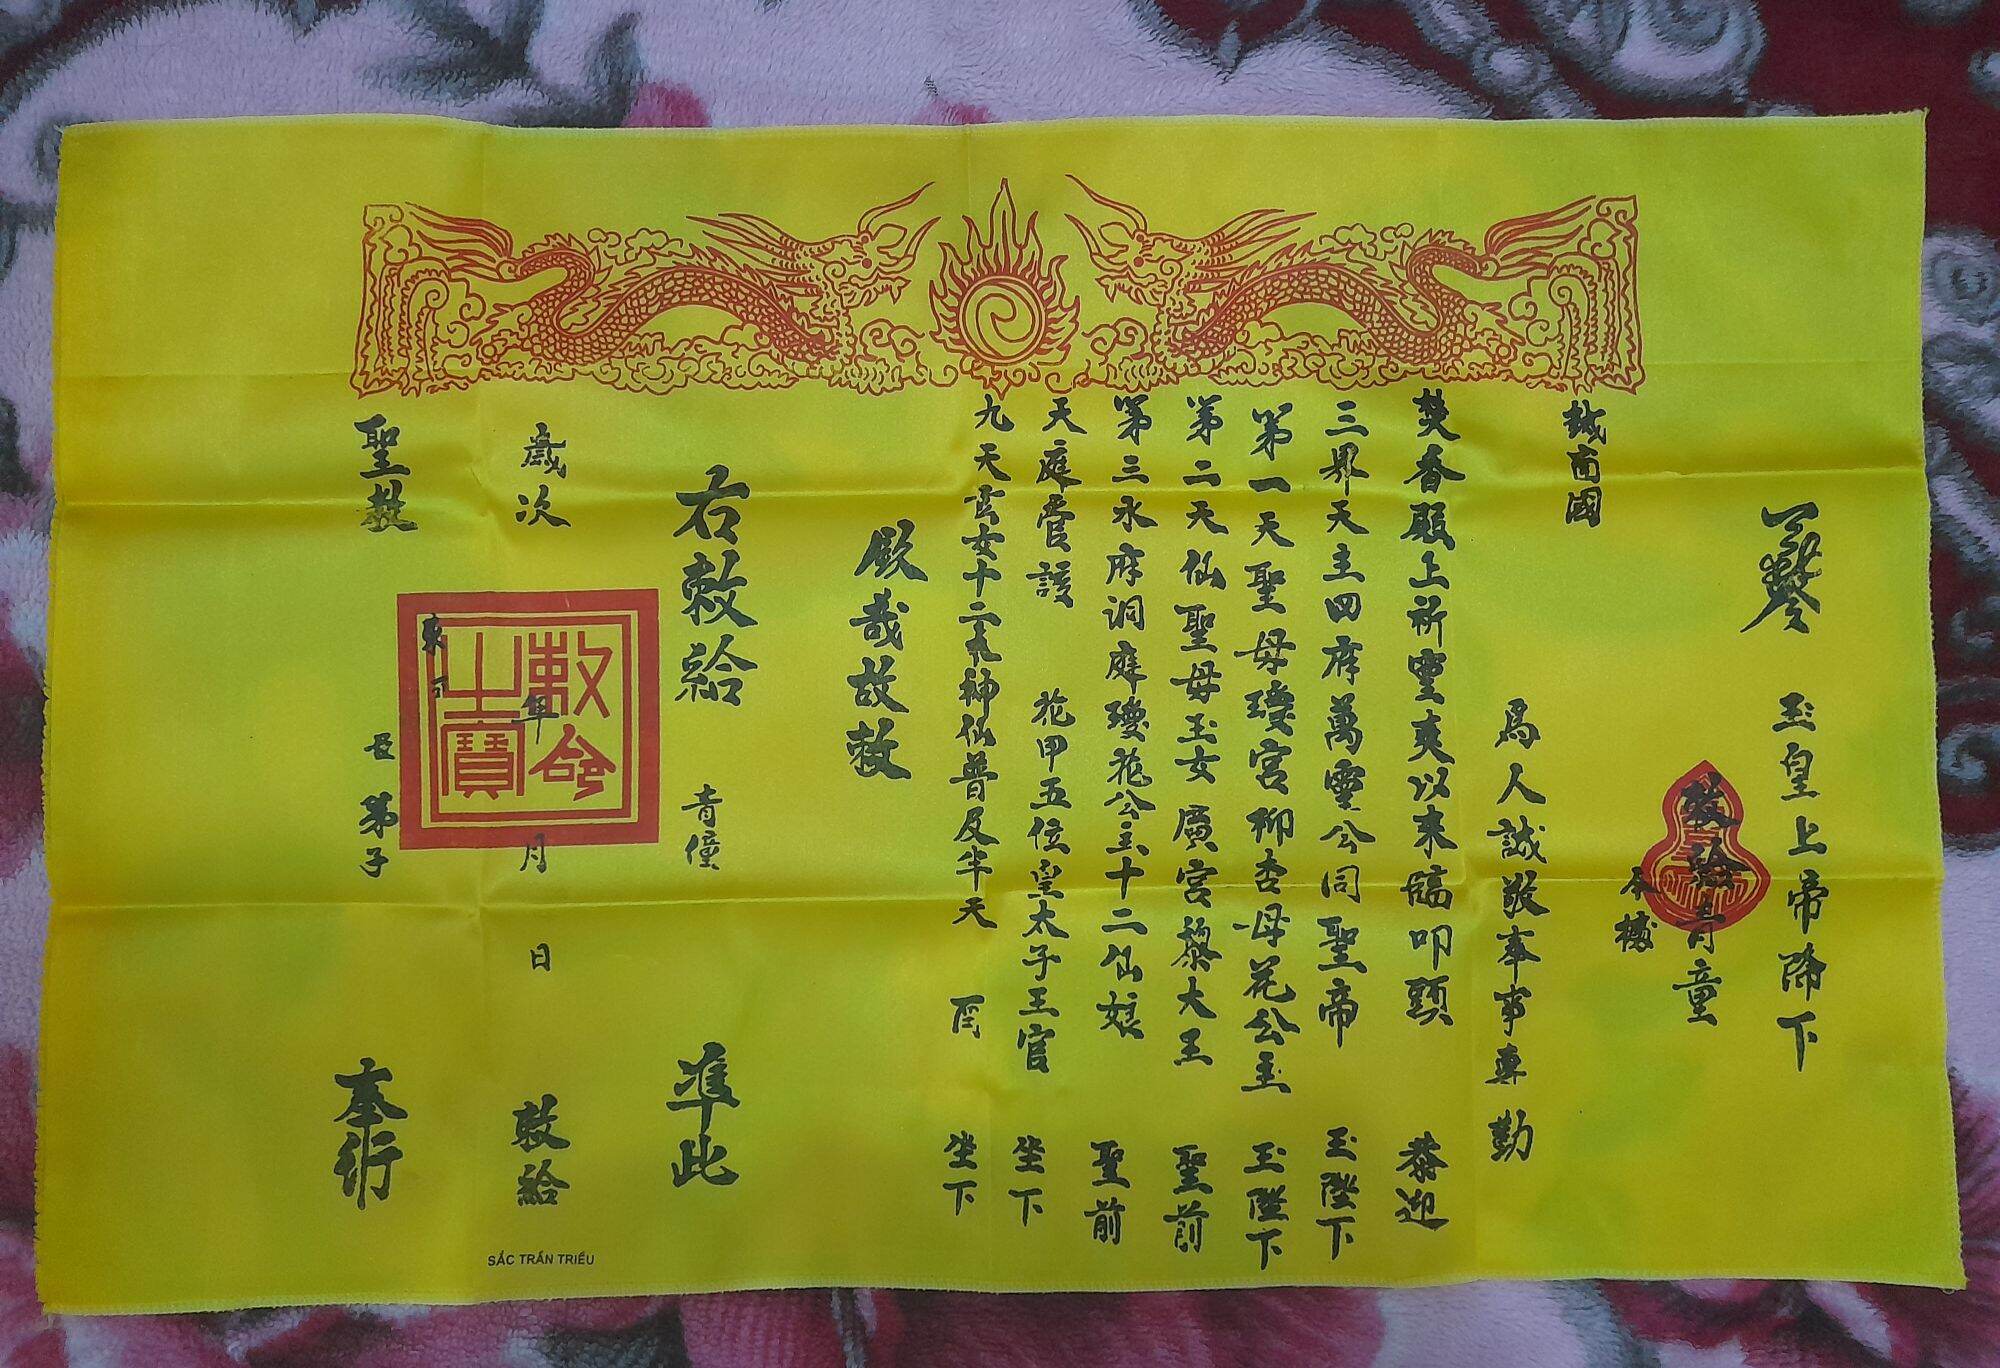 玉皇上帝降下
敕給青童
本
越南國
爲人誠敬奉事專勤
焚香殿上祈靈爽以來臨叩頭 恭迎
三界天主四府萬靈公同聖帝 玉陛下
第一天聖母瓊宮柳杏母花公主 玉陛下
第二天仙聖母玉女廣宮黎大王 聖前
第三水府洞庭瓊花公主十二仙娘 聖前
天庭管該 花甲五位皇太子王官 坐下
九天雲女十二 神仙普及半天 坐下
欽哉故敕
右敕給 青僮 準此
歲次 年 月 日 敕給
敕令之寶
聖教 弟子 奉行
SẮC TRẦN TRIỀU